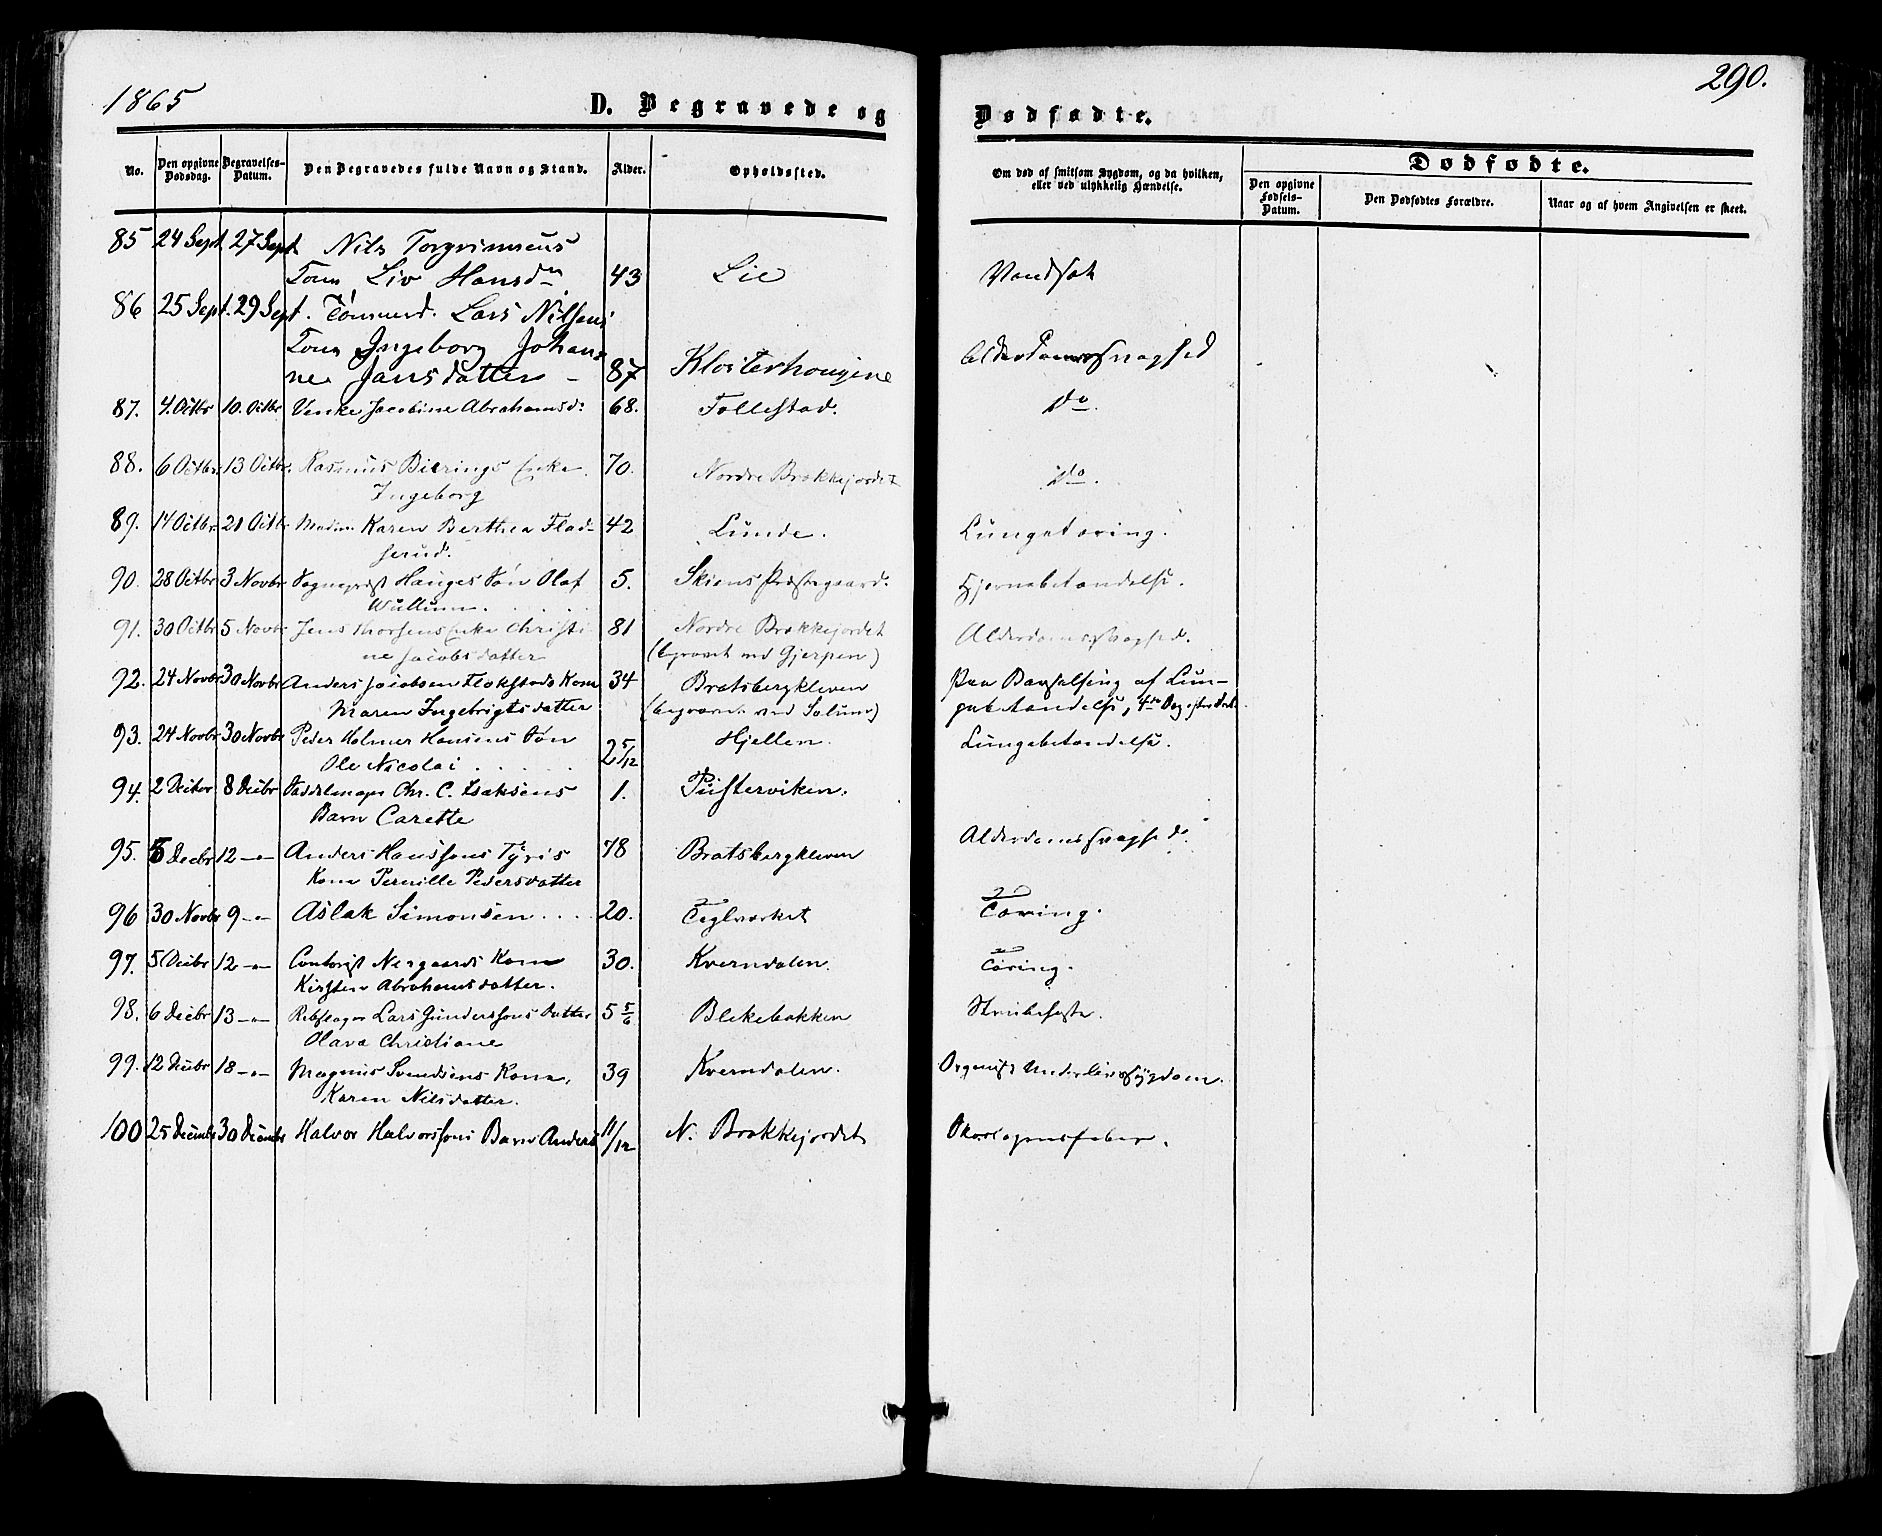 1865
290.
D. Begravede og Dødfødte.
No.
Den opgivne Dødsdag.
Begravelses-Datum.
Den Begravedes fulde Navn og Stand.
Alder.
Opholdssted.
Om død af smitsom Sygdom, og da hvilken, eller ved ulykkelig Hændelse.
Dødfødte.
Den opgivne Fødsels-Datum.
Den Dødfødtes Forældre.
Naar og af hvem Angivelsen er skeet.
85 24 Sept. 27 Sept Nils Torgrimsens
Kone Liv Hansdr 43 Lie Vandsot
86 25 Sept. 29 Sept. Tømmerd. Lars Nilsens
Kone Ingeborg Johan-
ne Jansdatter 87 Klosterhougene Alderdomssvaghed
87. 4. Octbr 10. Octbr Venke Jacobine Abrahamsd: 68. Follestad. do.
88. 6 Octbr 13 Octbr. Rasmus Bierings Enke 70. Nordre Brekkejordet do.
Ingeborg
89. 14 Octbr 21 Octbr Madm. Karen Berthea Flad- 42 Lunde. Lungetæring.
serud.
90. 28 Octbr 3 Novbr Sognepræst Hauges Søn Olaf 5. Skiens Præstegaard. Hjernebetændelse.
Wullum.
91. 30 Octbr 5 Novbr Jens Thorsens Enke Christi- 81 Nordre Brekkejordet Alderdomssvaghed.
ne Jacobsdatter (begravet ved Gjerpen)
92. 24 Novbr 30 Novbr Anders Jacobsen Flakstads Kone 34 Bratsbergkleven Paa Barselseng af Lun-
Maren Ingebrigtsdatter (begravet ved Solum) gebetændelse, 4de Dag efter
93. 24 Novbr 30 Novbr Peder Holmer Hansens Søn 2 5/12 Hjellen. Lungebetændelse.
Ole Nicolai
94. 2 Decbr 8 Decbr Sadelmager Chr. C. Isaksens 1. Pusterviken.
Barn Carette
95. 5 Decbr 12 -"- Anders Hanssons Tyris 78 Bratsbergkleven Alderdomssvaghed.
Kone Pernille Pedersdatter
96 30 Novbr 9 -"- Aslak Simonsen 20. Teglværket Tæring.
97. 5 Decbr 12 -"- Contorist Nergaards Kone 30. Kverndalen. Tæring.
Kirsten Abrahamsdatter.
98. 6 Decbr 13 -"- Rebslager Lars Gunderssons Datter 5 5/6 Blekebakken Strubehoste.
Olava Christiane
99. 12 Decbr 18 -"- Magnus Svendsens Kone, 39 Kverndalen. Organisk Underlivssygdom.
Karen Nilsdatter.
100 25 Decembr 30 Decembr Halvor Halvorssons Barn Anders 11/12 N. Brekkejordet Skarlagensfeber.